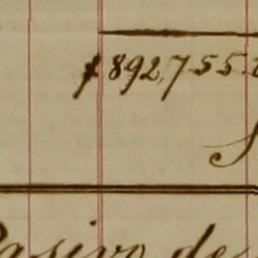 $892,755.
Pasivo de